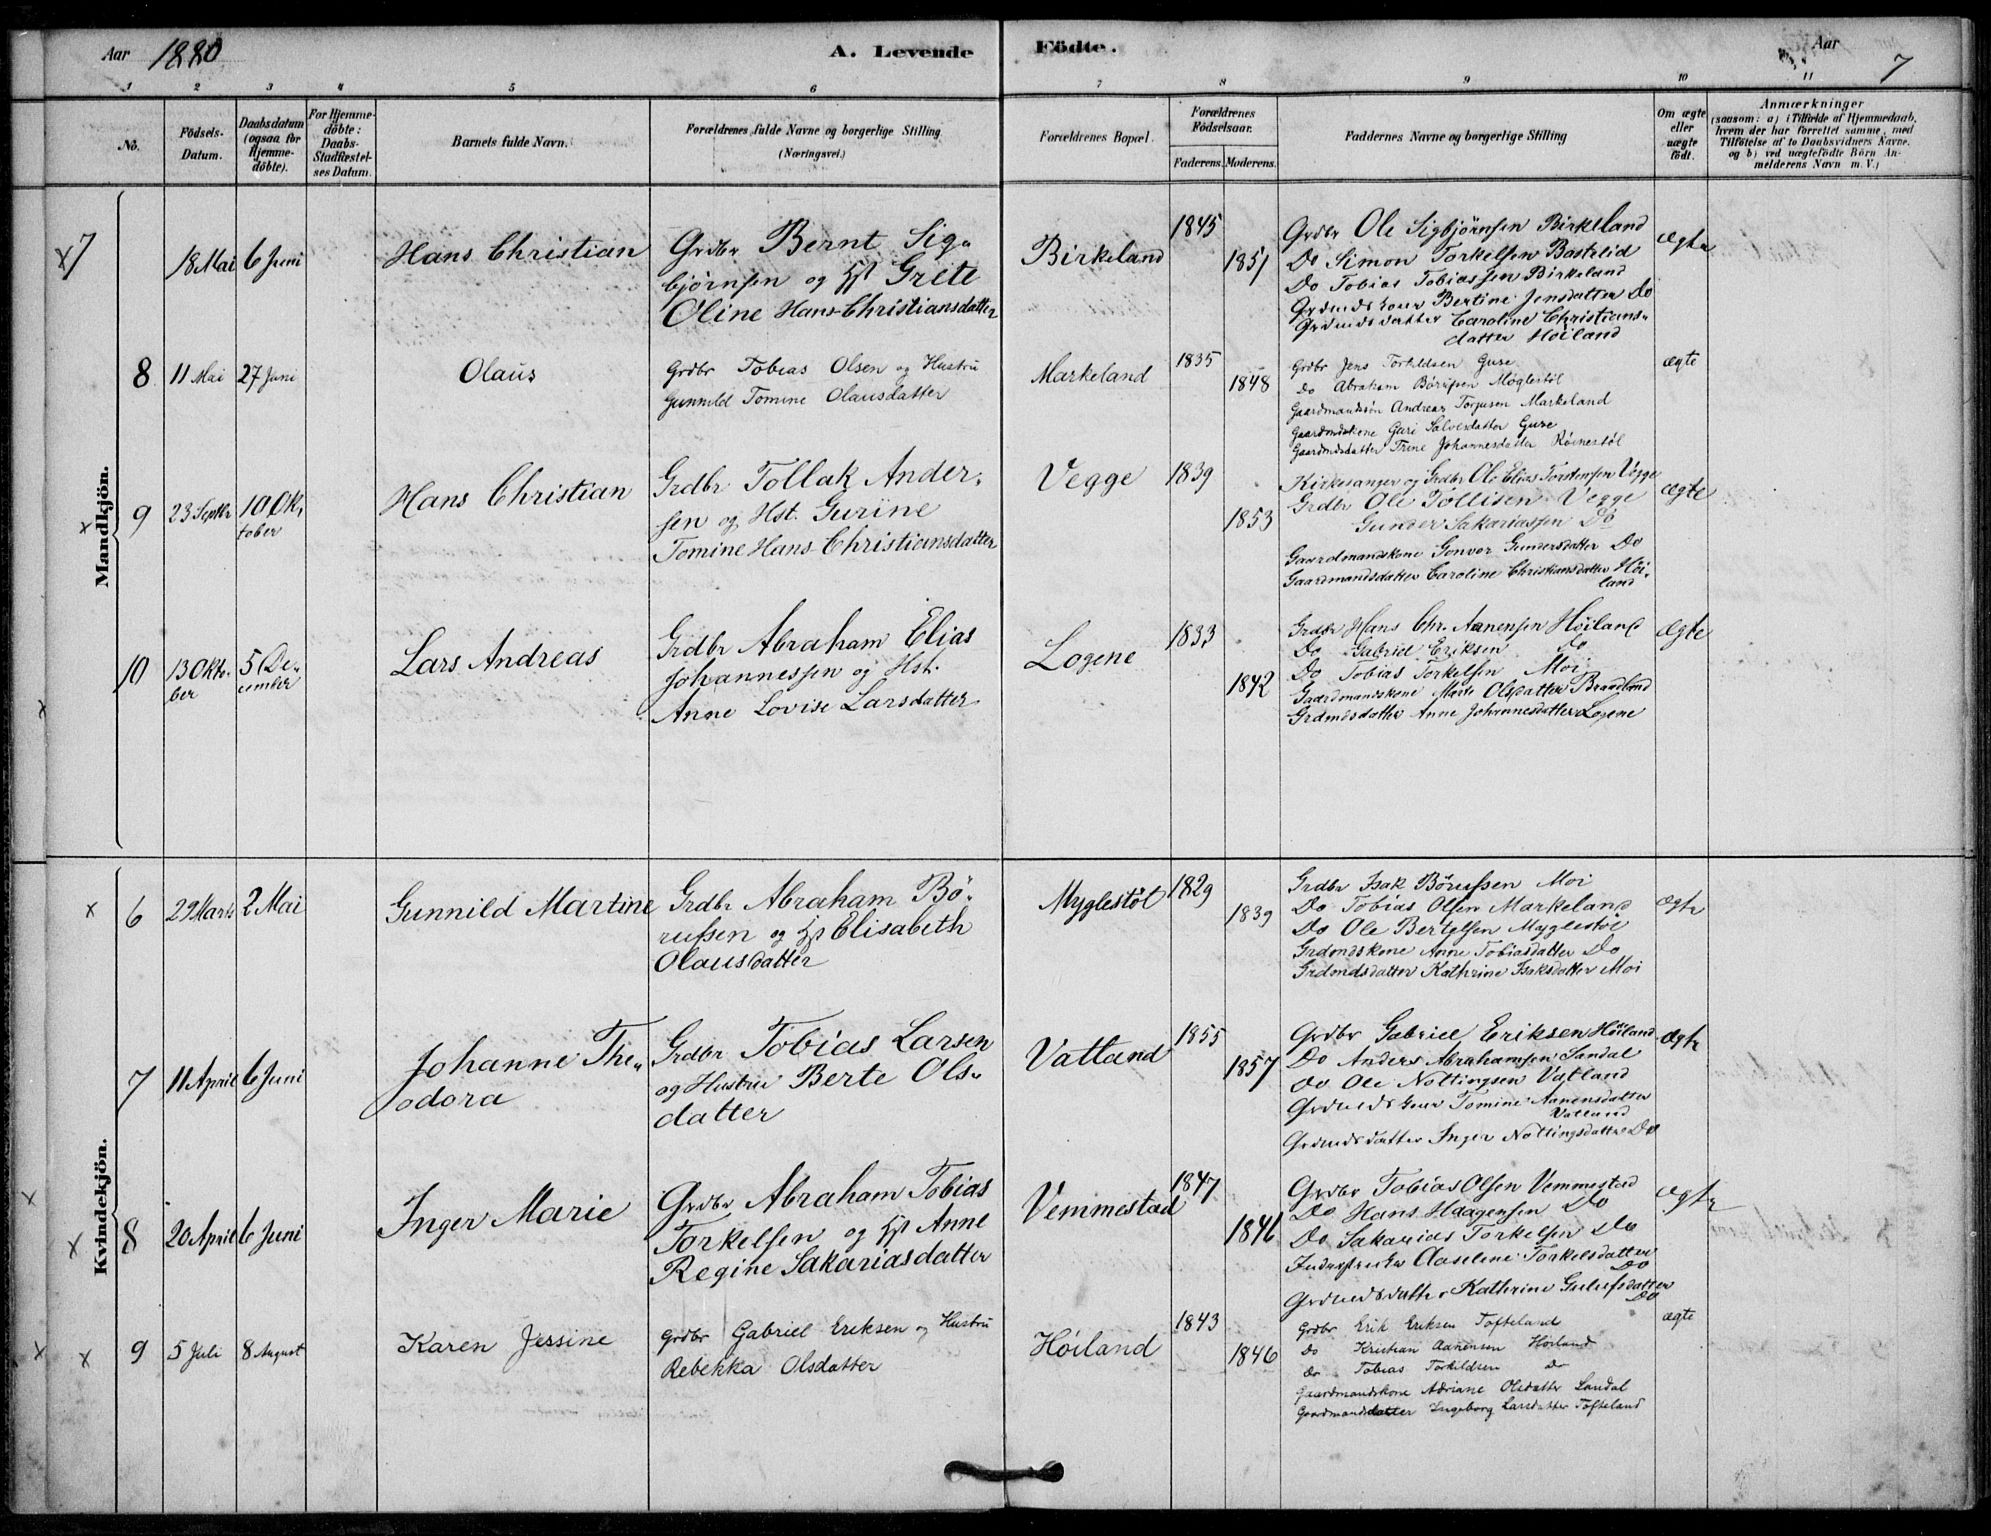 Aar 1880 A. Levende Födte. Aar 7
1 2 3 4 5 6 7 8 9 10 11
No.
Födsels-Datum.
Daabsdatum (ogsaa for Hjemmedöbte).
For Hjemmedöbte: Daabs-Stadfæstelses Datum.
Barnets fulde Navn.
Forældrenes fulde Navne og borgerlige Stilling (Næringsvei.)
Forældrenes Bopæl.
Forældrenes Födselsaar.
Faderens. Moderens.
Faddernes Navne og borgerlige Stilling
Om ægte eller uægte födt.
Anmærkninger
(saasom: a) i Tilfælde af Hjemmedaab, hvem der har forrettet samme, med Tilföielse af to Daabsvidners Navne, og b) ved uægtefödte Börn Anmelderens Navn m. V.)
Mandkjön.
7 18 Mai 6 Juni Hans Christian Grdbr Bernt Sig- Birkeland 1845 1851 ægte
bjørnsen og Hst Grete
Oline Hans Christiansdatter
Grdbr Ole Sigbjørnsen Birkeland
Do Simon Torkelsen Bastelid
Do Tobias Tobiassen Birkeland
Bertine Jensdatter Do
Caroline Christians-
datter Høiland
8 11 Mai 27 Juni Olaus Grdbr Tobias Olsen og Hustru Markeland 1835 1848 ægte
Gunnild Tomine Olausdatter
Grdbr Jens Torkildsen Guse
Do Abraham Børufsen Møglestøl
Gaardmandssøn Andreas Torjusen Markeland
Gaardmdskone Guri Salvesdatter Guse
Gaardmdsdatter Trine Johannesdatter Røinestøl
9 23 Septbr 10 Ok- Hans Christian Grdbr Tollak Ander- Vegge 1839 1853 ægte
tober
sen og Hst. Gurine
Tomine Hans Christiansdatter
Kirkesanger og Grdbr Ole Elias Torstensen Vegge
Grdbr Ole Tollisen Vegge
Gunder Sakariassen Do
Gaardmandskone Gonvor Gundersdatter Do
Gaardmandsdatter Caroline Christiansdatter Høi-
land
10 13 Okto- 5 De- Lars Andreas Grdbr Abraham Elias Logene 1833 1842 ægte
ber cember
Johannessen og Hst.
Anne Lovise Larsdatter
Grdbr Hans Chr. Aanensen Høiland
Do Gabriel Eriksen Do
Do Tobias Torkelsen Moi
Gaardmandskone Marte Olsdatter Braadland
Grdmdsdatter Anne Johannesdatter Logene
Kvindekjön.
6 29 Marts 2 Mai Gunnild Martine Grdbr Abraham Bö- Myglestöl 1829 1839 ægte
rufsen og Hst Elisabeth
Olausdatter
Grdbr Isak Börufsen Moi
Do Tobias Olsen Markeland
Do Ole Bertelsen Myglestöl
Grdmdskone Anne Tobiasdatter Do
Grdmdsdatter Kathrine Isaksdatter Moi
7 11 April 6 Juni Johanne The- Grdbr Tobias Larsen Vatland 1855 1857 ægte
odora
og Hustru Berte Ols-
datter
Grdbr Gabriel Eriksen Höiland
Do Anders Abrahamsen Sandal
Do Ole Nottingsen Vatland
Tomine Aanensdatter
Vatland
Inger Nottingsdatter Do
8 20 April 6 Juni Inger Marie Grdbr Abraham Tobias Vemmestad 1847 1846 ægte
Torkelsen og Hst Anne
Regine Sakariasdatter
Grdbr Tobias Olsen Vemmestad
Do Hans Haagensen Do
Do Sakarias Torkelsen Do
Aaselene Torkelsdatter
Do
Kathrine Gulufsdatter
Do
9 5 Juli 8 August Karen Jessine Grdbr Gabriel Eriksen og Hustru Höiland 1843 1846 ægte
Rebekka Olsdatter
Grdbr Erik Eriksen Tofteland
Do Kristian Aanensen Höiland
do Tobias Torkildsen do
Gaardmandskone Adriane Olsdatter Sandal
Gaardmandsdatter Ingeborg Larsdatter Tofteland